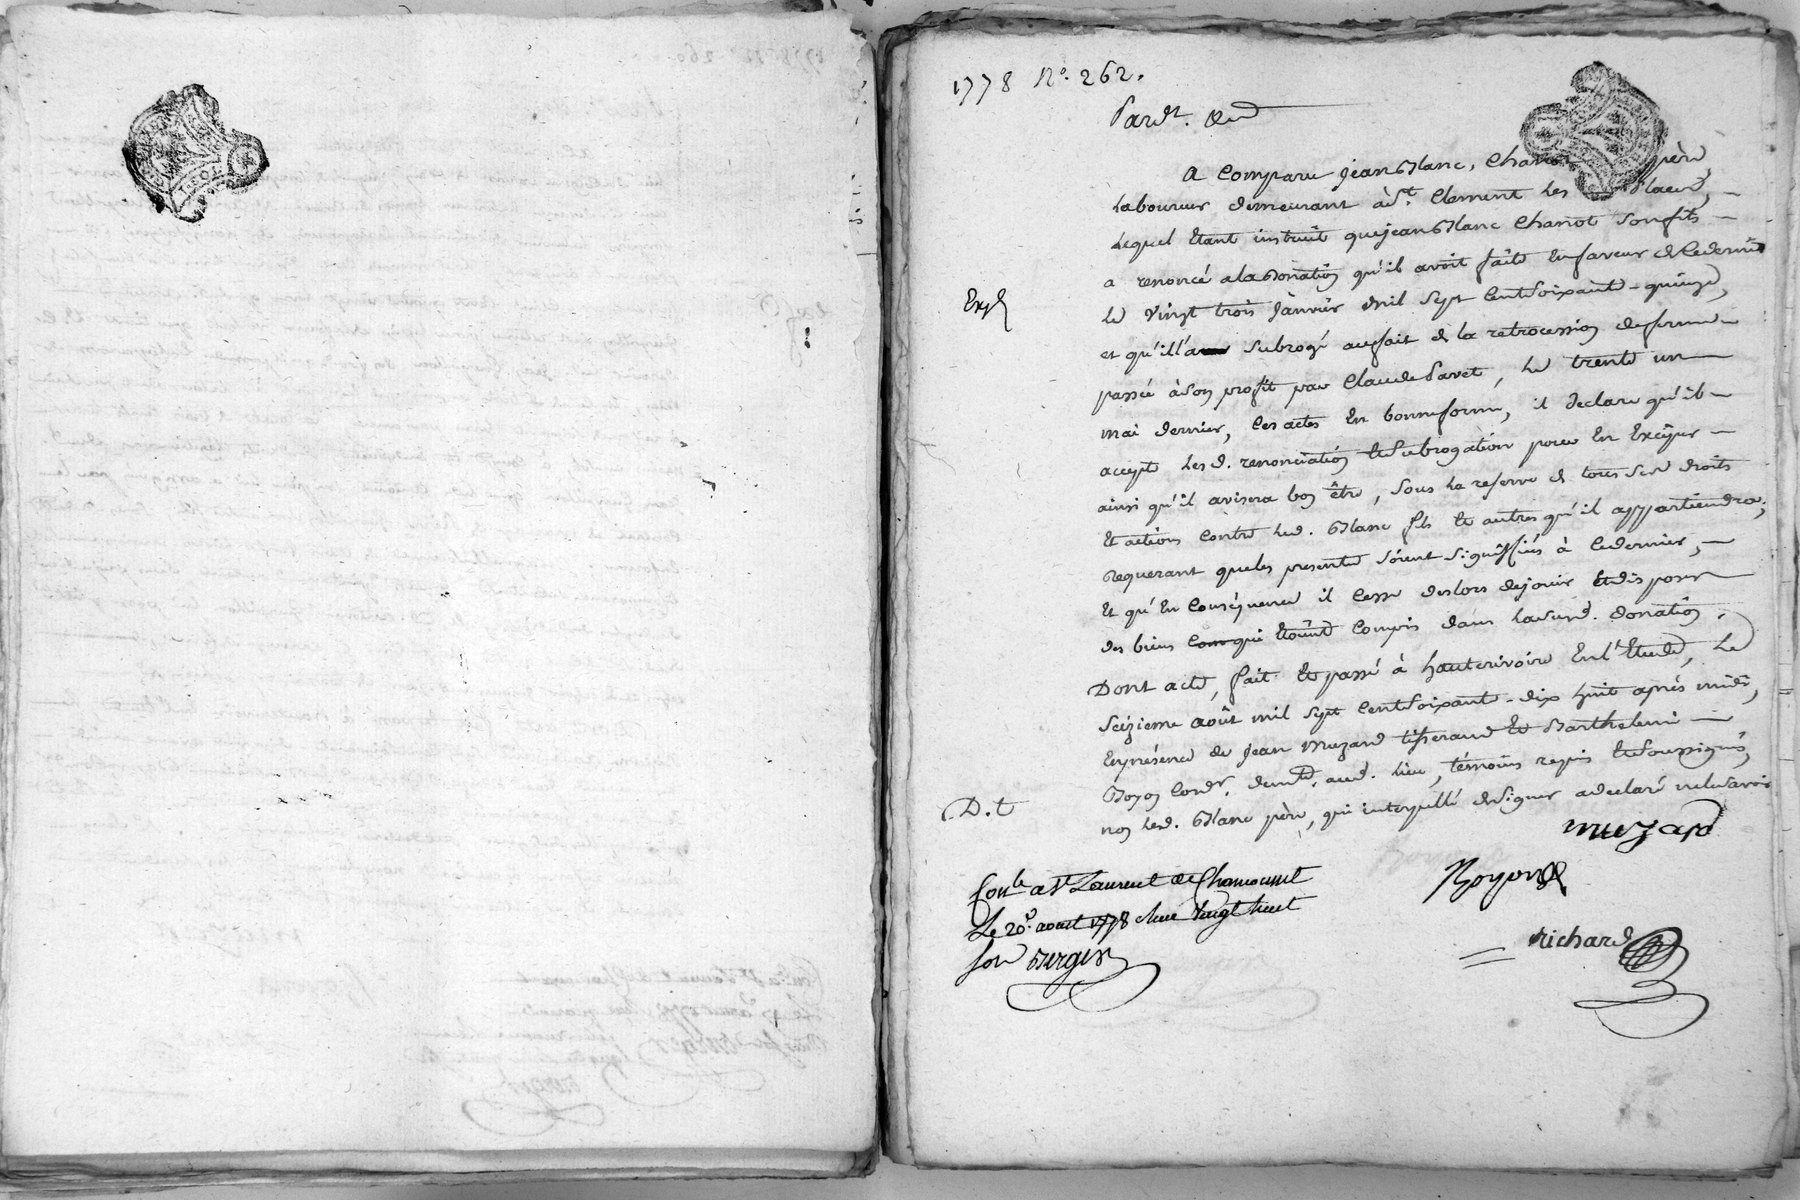 1778 N.° 262.
Pardt. &c
A Comparu jean Blanc, Charrot père
Laboureur demeurant à St. Clement les Places,
Lequel Etant instruit que jean Blanc Charrot son fils
a renoncé a la Donation qu'il avoit faite En faveur de Ce dernier
Le Vingt trois Janvier mil Sept Cent Soixante-quinze,
Exp
et qu'il l'a subrogé au fait de la retrocession de ferme
passée à Son profit par Claude Pavet, Le trente un
mai dernier, Ces actes En bonne forme, il declare qu'il
accepte Lesd. renonciation & Subrogation pour En Exciper
ainsi qu'il avisera bon être, Sous La reserve de tous Ses droits
Et actions Contre Led. Blanc fils Et autres qu'il appartiendra;
Requerant que les presentes Soient Signiffiées à Ce dernier,
Et qu'En Conséquence il Cesse deslors de jouir Et disposer
des biens qui Etoient Compris dans Lad. donation.
Dont acte, fait Et passé à hauterivoire En l'Etude, Le
Seizieme août mil Sept Cent Soixante-dix huit après midi,
En présence de Jean Muzard tisserand Et Barthelemi
Boyon Cordr. demts. aud. Lieu, témoins requis Et Soussignés,
D.t
non Led. Blanc père, qui interpellé de Signer a declaré ne le Savoir
muzard
Conlé a St Laurent de Chamousset
Boyon
Le 20e. aoust 1778 Vingt huit
richard
sols Berger